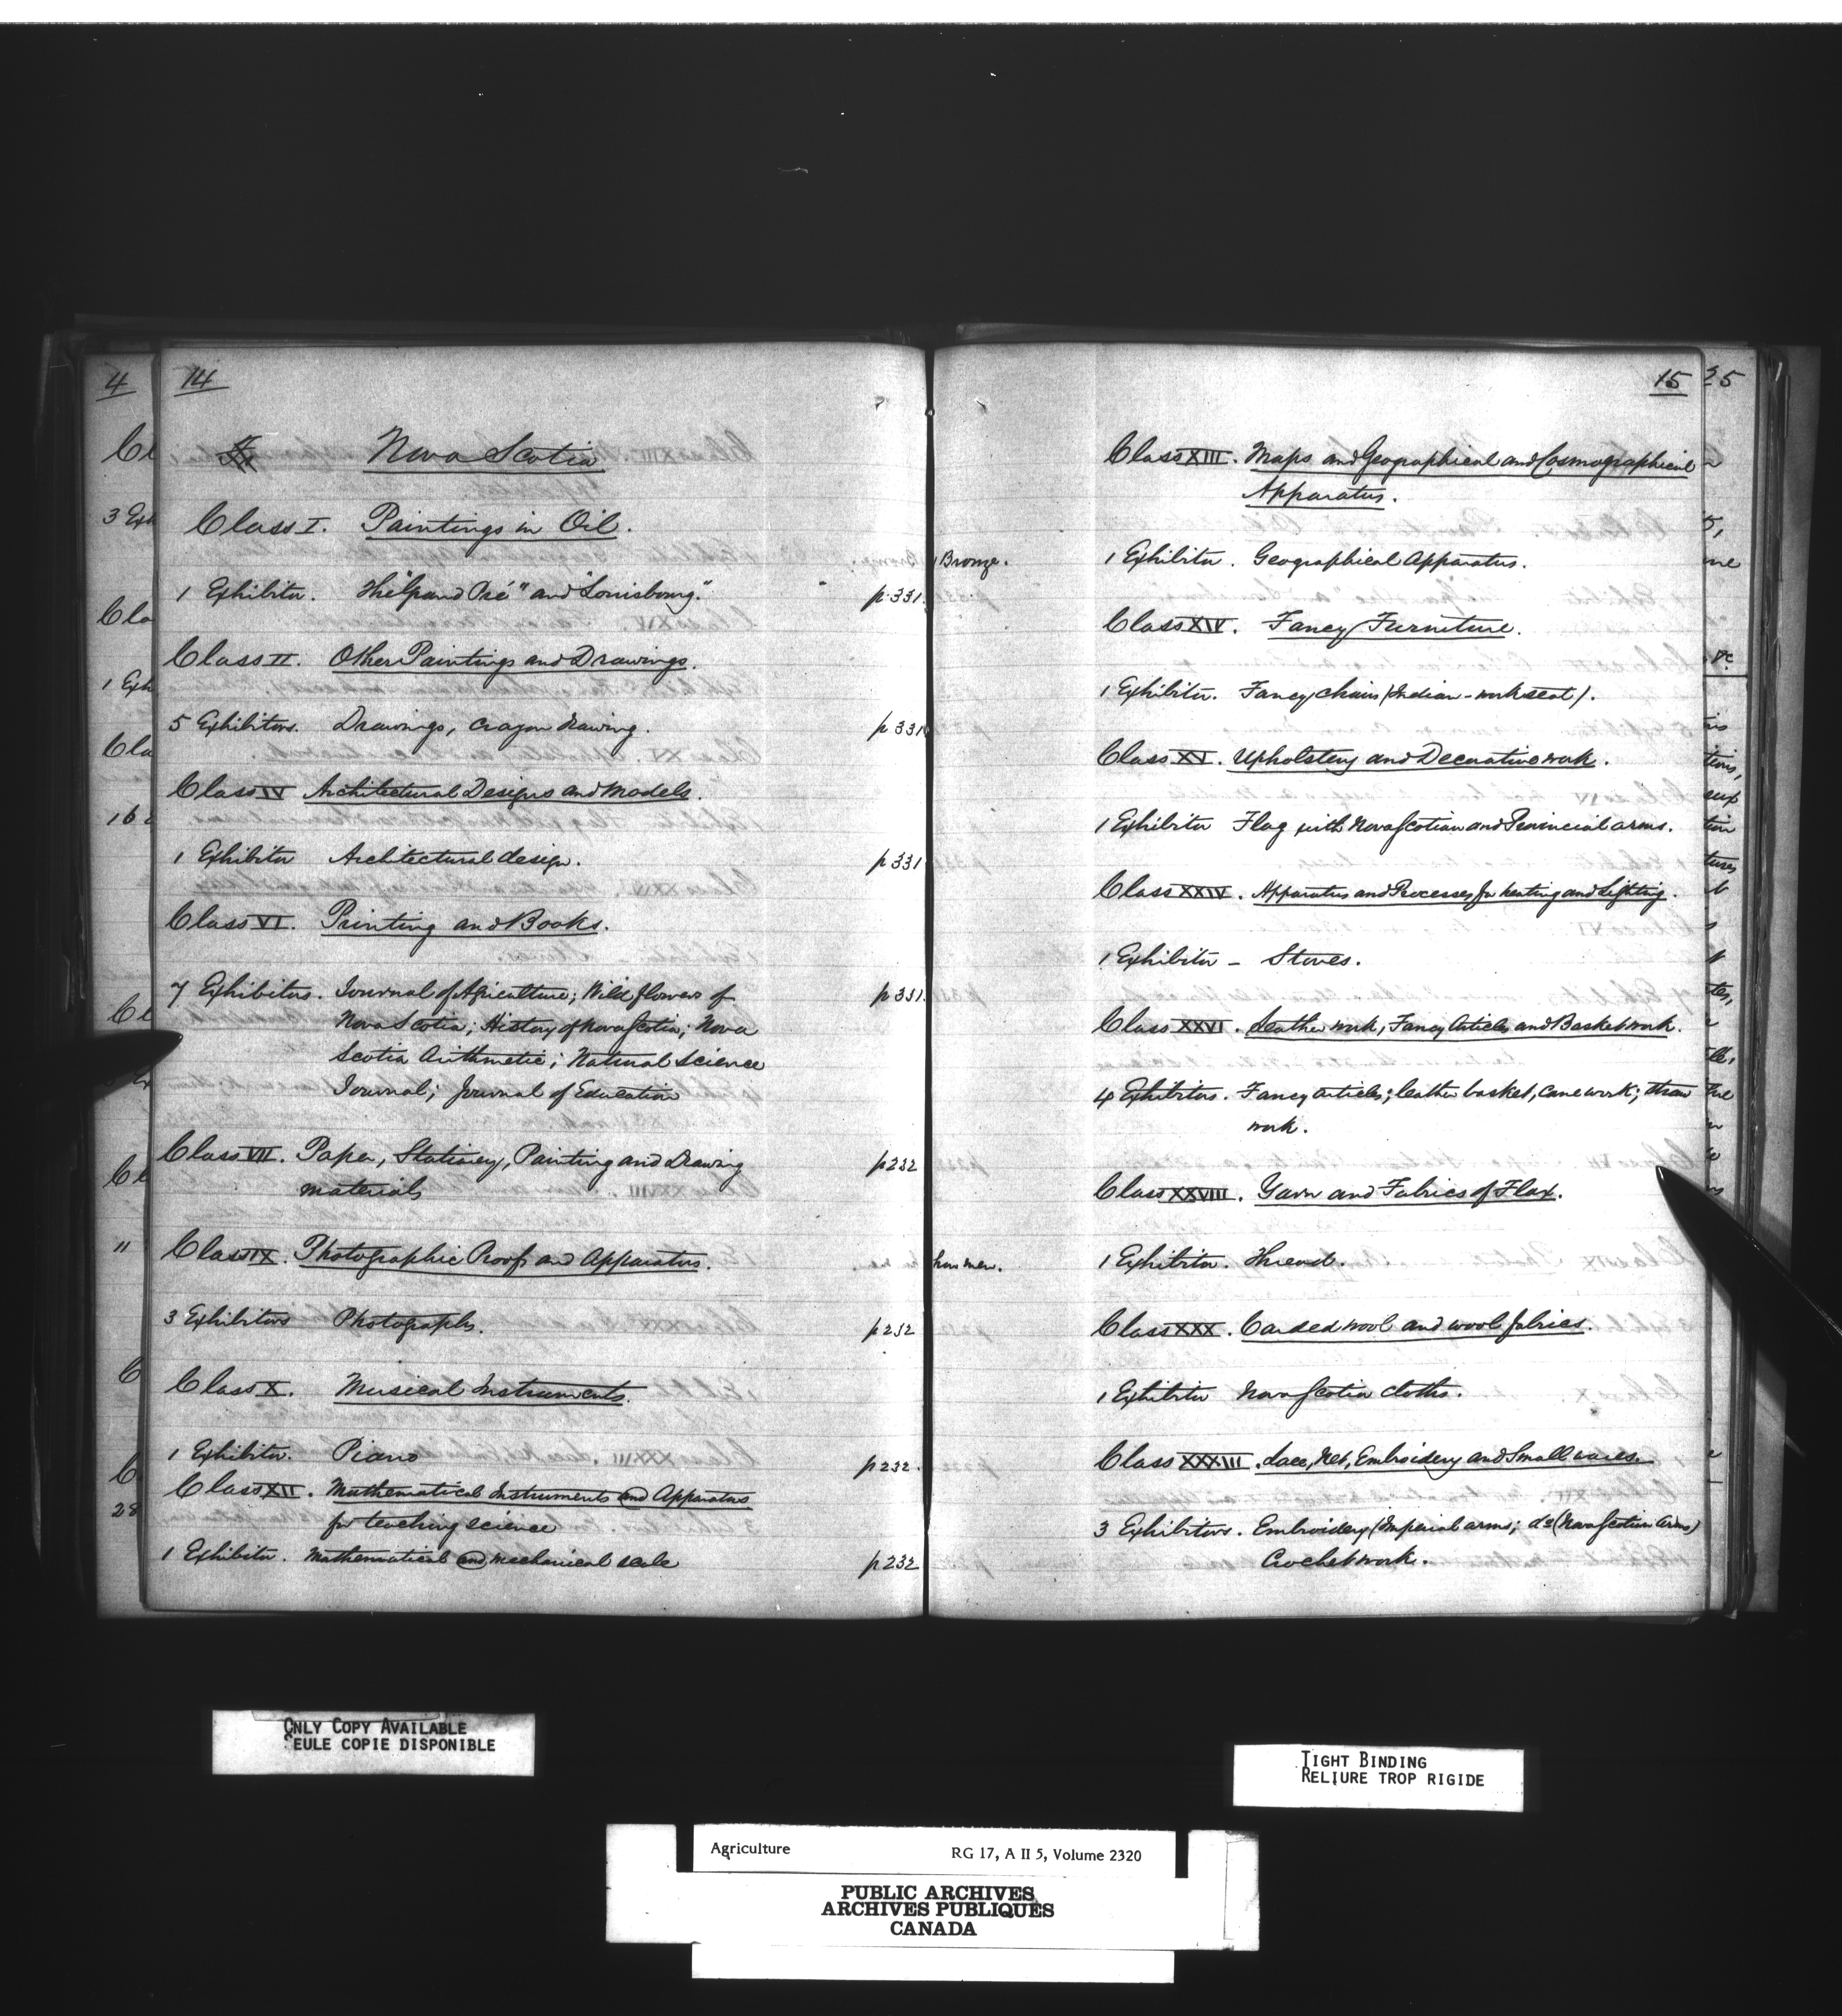 4
14
Nova Scotia
Class I. Paintings in Oil.
1 Exhibitor. The "Grand Pré" and "Louisbourg." p. 331
Class II. Other Paintings and Drawings.
5 Exhibitors. Drawings, crayon drawing. p 331
Class IV Architectural Designs and Models.
1 Exhibitor Architectural design. p 331
Class VI. Printing and Books.
7 Exhibitors. Journal of Agriculture; Wild flowers of p 331
Nova Scotia; History of Nova Scotia; Nova
Scotia Arithmetic; Natural Science
Journal; Journal of Education
Class VII. Paper, Stationery, Painting and Drawing p 232
materials
Class IX. Photographic Proofs and Apparatus.
3 Exhibitors Photographs. p 232
Class X. Musical Instruments.
1 Exhibitor. Piano p 232.
Class XII. Mathematical Instruments and Apparatus
for teaching science
1 Exhibitor. Mathematical and mechanical scale p 232
15
25
Class XIII. Maps and Geographical and Cosmographical
Apparatus.
1 Bronze. 1 Exhibitor. Geographical Apparatus.
Class XIV. Fancy Furniture.
1 Exhibitor. Fancy chairs (Indian-work seat).
Class XV. Upholstery and Decorative work.
1 Exhibitor Flag with Nova Scotian and Provincial arms.
Class XXIV. Apparatus and Processes for heating and Lighting.
1 Exhibitor - Stoves.
Class XXVI. Leather work, Fancy Articles and Basket work.
4 Exhibitors. Fancy articles; leather basket, cane work; straw
work.
Class XXVIII. Yarn and Fabrics of Flax.
hon men. 1 Exhibitor. Thread.
Class XXX. Carded wool and wool fabrics.
1 Exhibitor Nova Scotia cloths.
Class XXXIII. Lace, Net, Embroidery and Small wares.
3 Exhibitors. Embroidery (Imperial arms; do (Nova Scotian Arms)
Crochet work.
ONLY COPY AVAILABLE
SEULE COPIE DISPONIBLE
TIGHT BINDING
RELIURE TROP RIGIDE
Agriculture RG 17, A II 5, Volume 2320
PUBLIC ARCHIVES
ARCHIVES PUBLIQUES
CANADA